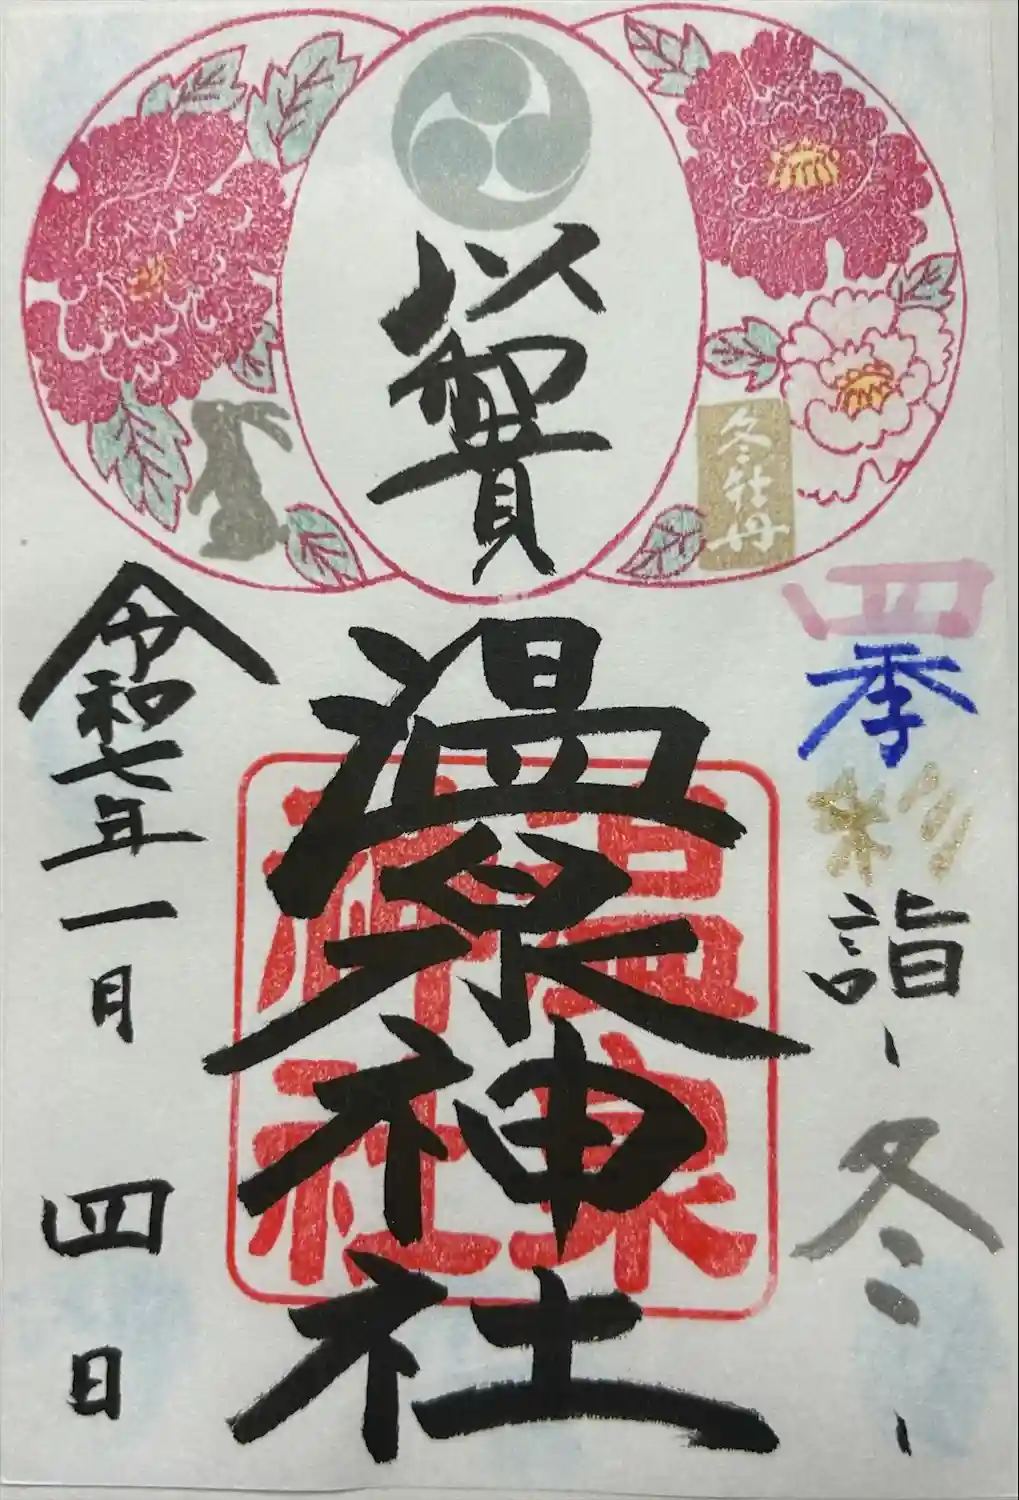 冬牡丹
四季彩詣-冬-
温泉神社
温泉
神社
令和七年一月四日